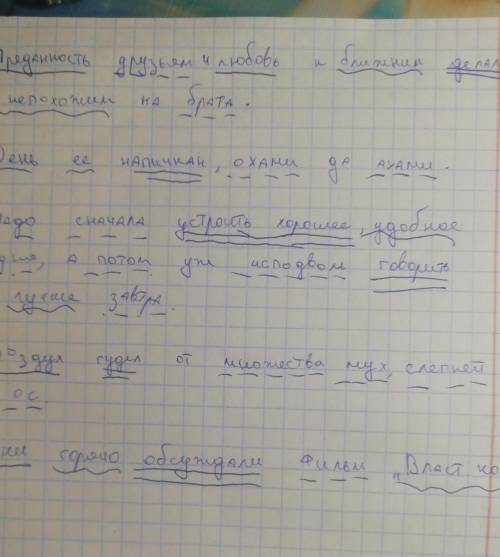 Преданность друзьям и любовь к ближним делал
непохожим на брата.
День ее напичкан, охами да ахами.
Надо сначала устроить хорошее, удобное
а потом уж исподвом говорить
лучше завтра.
воздух гудел от множества мух, слепней
ос.
горячо обсуждали фильм „Власт